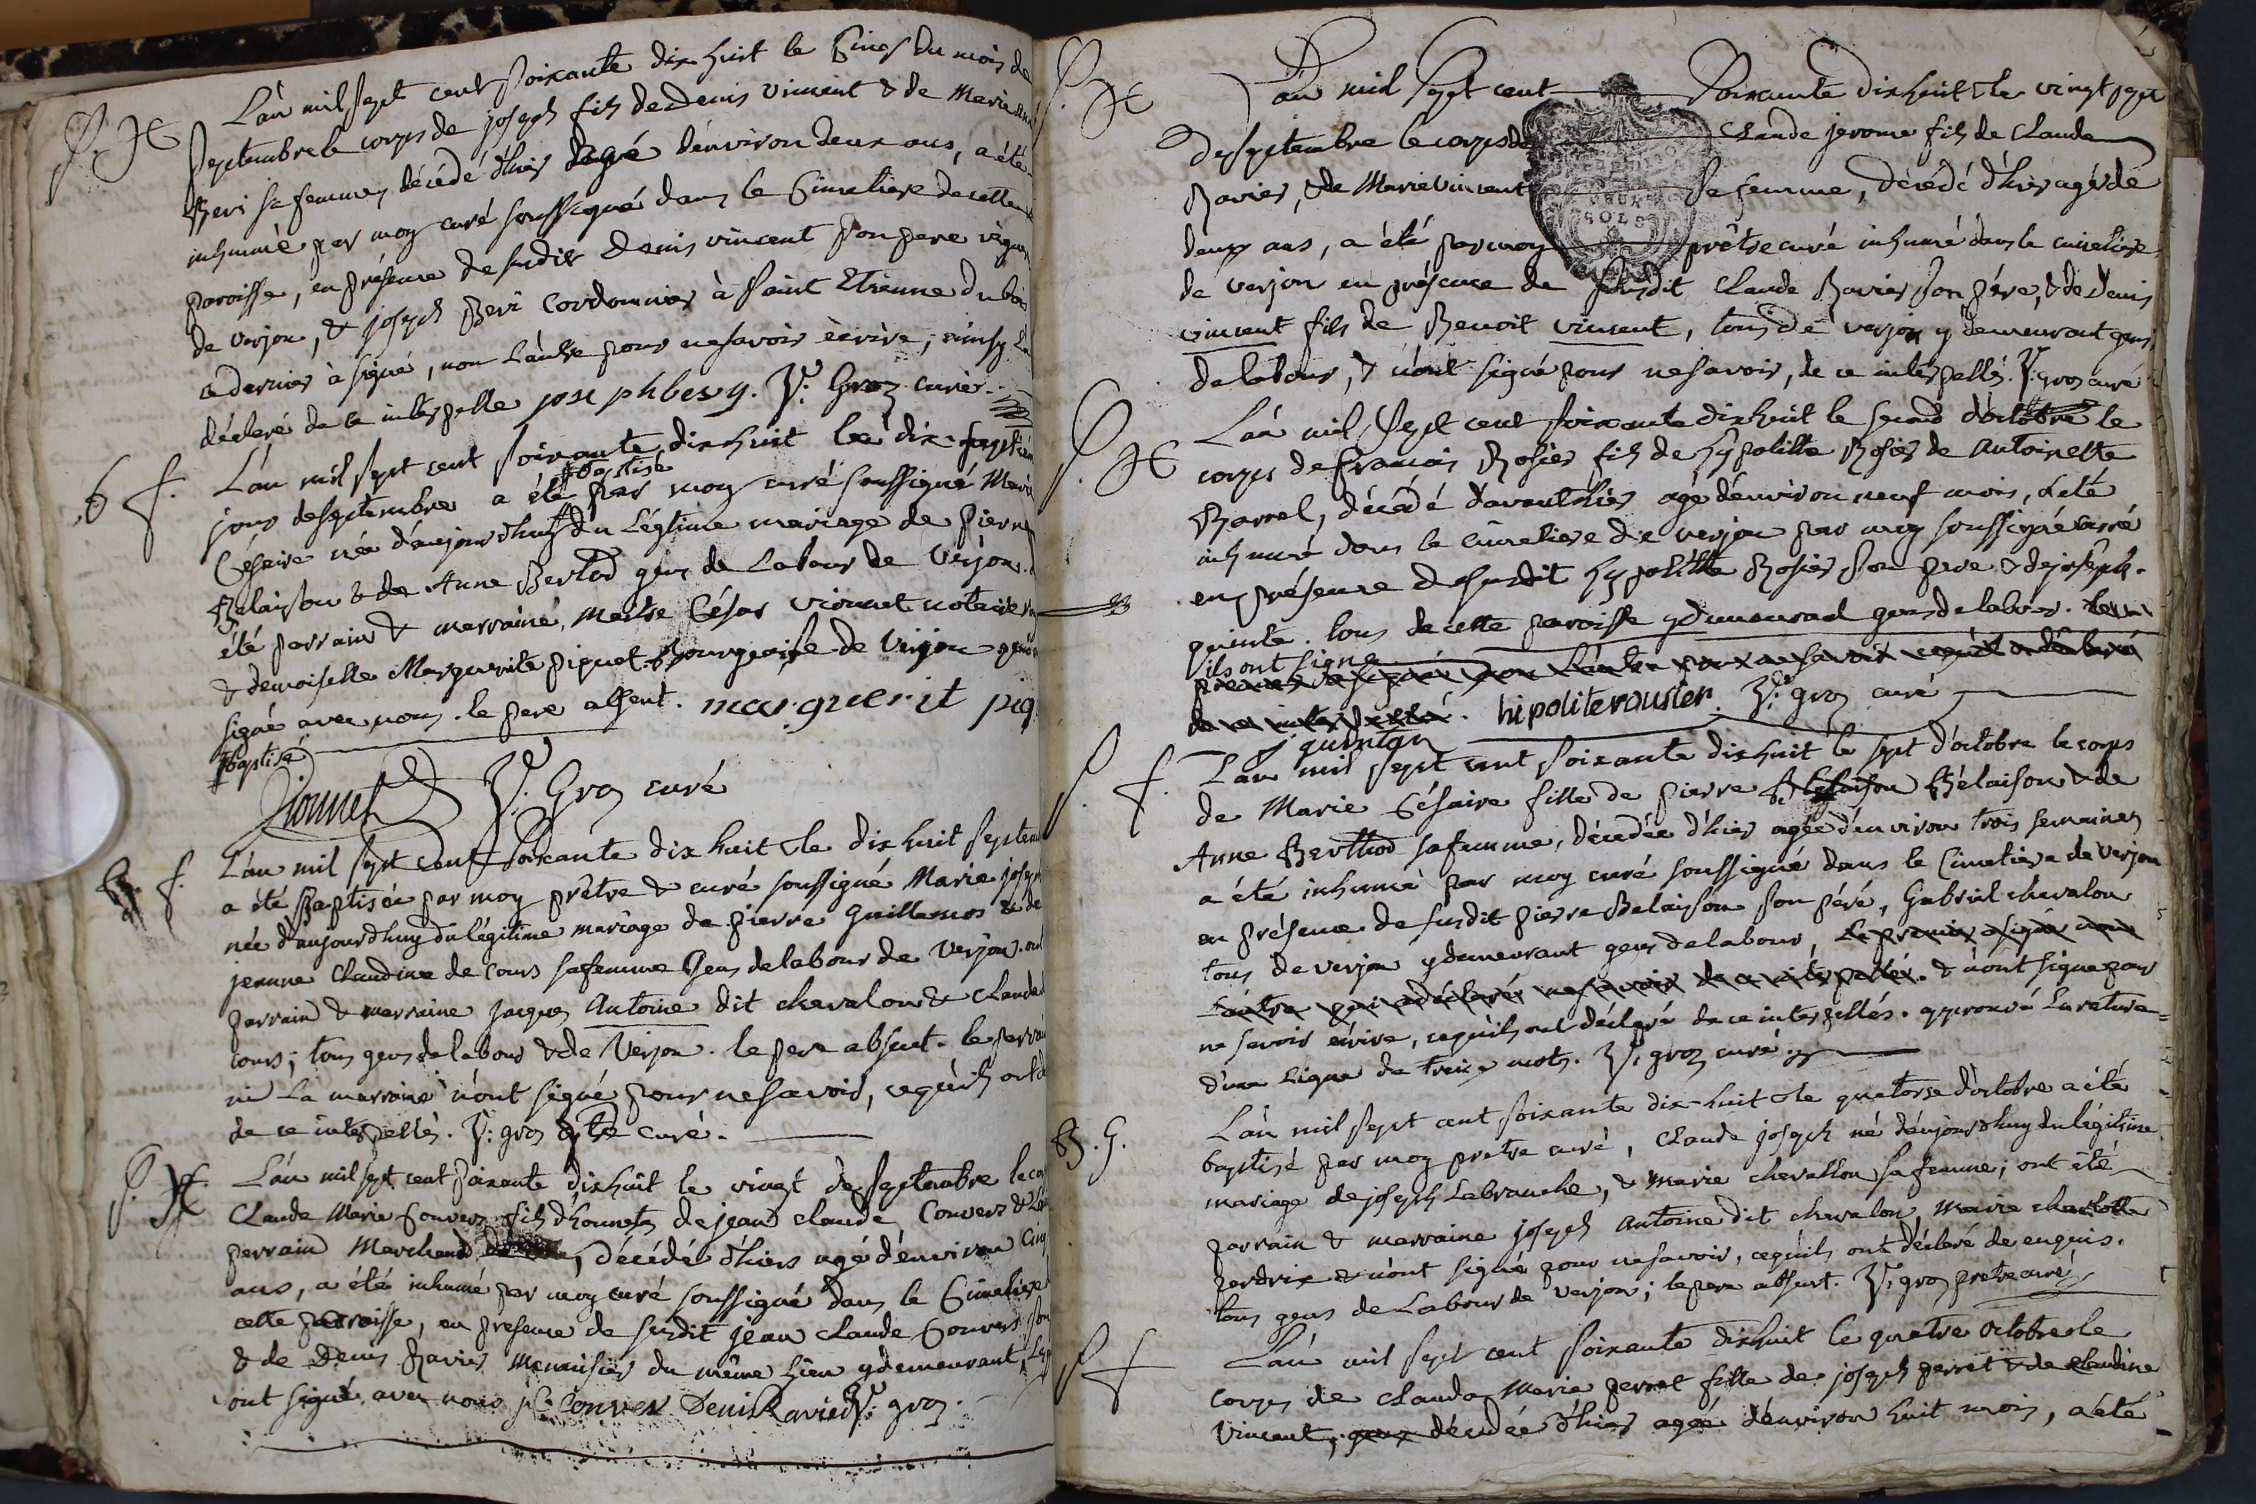 S. H
L'an mil sept cent soixante dix huit le cinq du mois de
septembre le corps de joseph fils de Denis vincent & de Marie
Beri sa femme, décédé d'hier âgé d'environ deux ans, a été
inhumé par moy curé soussigné dans le Cimetiere de cette
paroisse, en présence de susdit denis vincent son pere
de verjon, & joseph Beri Cordonnier à saint Etienne du bois
ce dernier à signé, non l'autre pour ne savoir écrire, ainsy
déclaré de ce interpellé josephbery. P: Groz curé.
b f.
L'an mil sept cent soixante dixhuit le dix-sept
jour de septembre a été baptisé par moy curé soussigné Marie
Césaire née d'aujourd'huy du Légitime mariage de Pierre
Belaison & de Anne Bertod gens de Labour de Verjon.
été parrain & marraine, maitre César vionnet notaire
& demoiselle Marguerite piquet Bourgeoise de Verjon
signé avec nous. le pere absent. marguerit piq
baptisé
Vionnet P: Groz curé
B. f.
L'an mil sept cent soixante dix huit le dix huit septem
a été Baptisée par moy prêtre & curé soussigné Marie joseph
née d'aujourdhuy du légitime mariage de pierre Guillemos & de
jeanne Claudine de Cours sa femme Gens de labour de Verjon. ont
parrain & marraine jacques Antoine dit chevalon & Claude
cours; tous gens de labour & de Verjon. le pere absent. le parrain
ni La marraine n'ont signé pour ne savoir, ce qu'ils ont
de ce interpellés. P: groz ptre curé.
S. H.
L'an mil sept cent soixante dixhuit le vingt de septembre le
Claude Marie Convers fils d'honnete de jean claude Convers &
perrain Marchand, décédé d'hiers agé d'environ cinq
ans, a été inhumé par moy curé soussigné dans le Cimetiere
cette parroisse, en présence de susdit jean claude Convers son
& de Denis Ravier Menuisier du même Lieu y demeurant,
ont signé avec nous j C Convers Deni Ravier P: groz.
S. H
L'an mil sept cent soixante dixhuit le vingt sept
de septembre le corps de Claude jerome fils de Claude
Ravier, & de Marie vincent sa femme, décédé d'hier agé de
deux ans, a été par moy prêtre curé inhumé dans le cimetiere
de verjon en présence de susdit Claude Ravier son pére, & de Denis
vincent fils de Benoit vincent, tous de verjon y demeurant gens
de labour, & n'ont signé pour ne savoir, de ce interpellés. P: groz curé
S. H
L'an mil sept cent soixante dixhuit le second d'octobre le
corps de françois Rosier fils de hypolitte Rosier de Antoinette
Barrel, décédé d'avanthier agé d'environ neuf mois, a été
inhumé dans le cimetiere de verjon par moy soussigné curé
en présence de susdit hypolitte Rosier son pere & de joseph
quinte. tous de cette paroisse y demeurant gens de labour.
ils ont signé
hipoliterousier. P: groz curé
J quintan
S. f.
L'an mil sept cent soixante dixhuit le sept d'octobre le corps
de Marie Césaire fille de pierre Bélaison & de
Anne Berthod sa femme, décedée d'hier agée d'environ trois semaines
a été inhumé par moy curé soussigné dans le Cimetiere de Verjon
en présence de susdit pierre Belaison son pére, Gabriel chevalon
tous de verjon y demeurant gens de labour, le premier a signé non
l'autre qui a déclaré ne savoir de ce interpellé. & n'ont signé pour
ne savoir écrire, ce qu'ils ont déclaré de ce interpellés. approuvé La rature
d'une Ligne de treize mots. P: groz curé.
B. G.
L'an mil sept cent soixante dix-huit le quatorse d'octobre a été
baptisé par moy pretre curé, Claude joseph né d'aujourdhuy du légitime
mariage de joseph Labranche, & Marie chevallon sa femme; ont été
parrain & marraine joseph Antoine dit chevalon, Marie charlotte
perdrix & n'ont signé pour ne savoir, ce qu'ils ont déclaré de enquis.
tous gens de Labour de verjon; le pere absent. P: groz pretre curé
S f
L'an mil sept cent soixante dixhuit le quatre octobre le
corps de Claude Marie perret fille de joseph perret & de Claudine
Vincent, décédée d'hier agée d'environ huit mois, a été